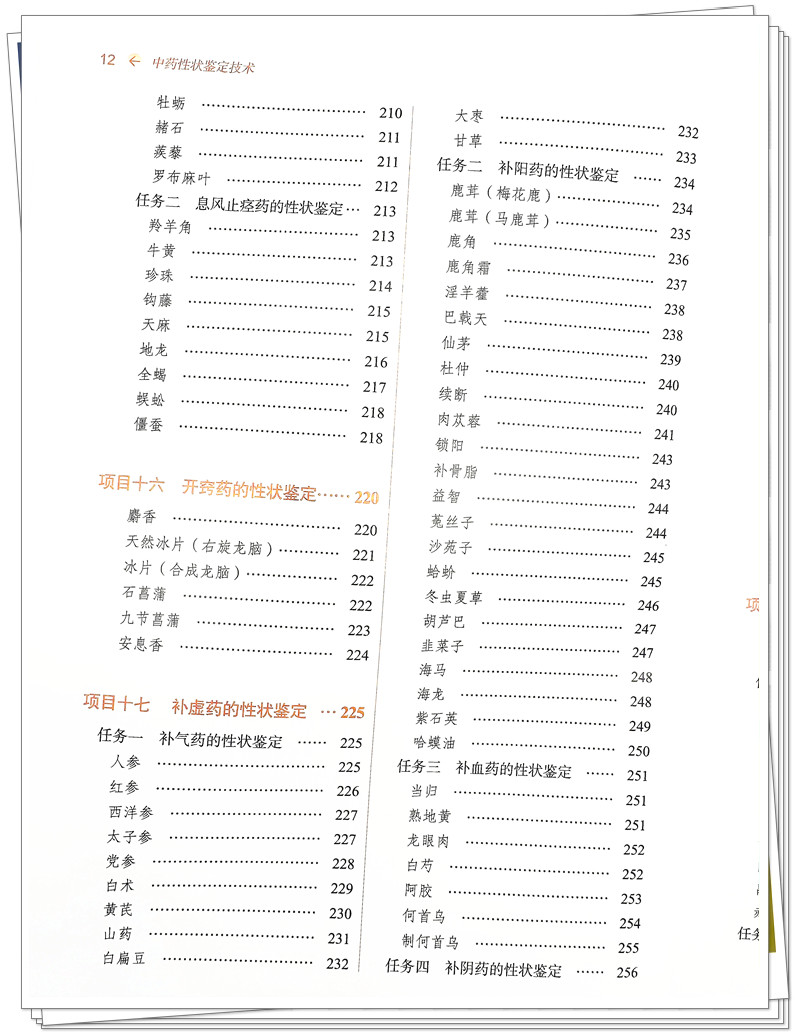 12 ← 中药性状鉴定技术
牡蛎 …… 210
赭石 …… 211
蒺藜 …… 211
罗布麻叶 …… 212
任务二 息风止痉药的性状鉴定 … 213
羚羊角 …… 213
牛黄 …… 213
珍珠 …… 214
钩藤 …… 215
天麻 …… 215
地龙 …… 216
全蝎 …… 217
蜈蚣 …… 218
僵蚕 …… 218
项目十六 开窍药的性状鉴定 …… 220
麝香 …… 220
天然冰片（右旋龙脑） …… 221
冰片（合成龙脑） …… 222
石菖蒲 …… 222
九节菖蒲 …… 223
安息香 …… 224
项目十七 补虚药的性状鉴定 … 225
任务一 补气药的性状鉴定 …… 225
人参 …… 225
红参 …… 226
西洋参 …… 227
太子参 …… 227
党参 …… 228
白术 …… 229
黄芪 …… 230
山药 …… 231
白扁豆 …… 232
大枣 …… 232
甘草 …… 233
任务二 补阳药的性状鉴定 …… 234
鹿茸（梅花鹿） …… 234
鹿茸（马鹿茸） …… 235
鹿角 …… 236
鹿角霜 …… 237
淫羊藿 …… 238
巴戟天 …… 238
仙茅 …… 239
杜仲 …… 240
续断 …… 240
肉苁蓉 …… 241
锁阳 …… 243
补骨脂 …… 243
益智 …… 244
菟丝子 …… 244
沙苑子 …… 245
蛤蚧 …… 245
冬虫夏草 …… 246
胡芦巴 …… 247
韭菜子 …… 247
海马 …… 248
海龙 …… 248
紫石英 …… 249
哈蟆油 …… 250
任务三 补血药的性状鉴定 …… 251
当归 …… 251
熟地黄 …… 251
龙眼肉 …… 252
白芍 …… 252
阿胶 …… 253
何首乌 …… 254
制何首乌 …… 255
任务四 补阴药的性状鉴定 …… 256
项
任务